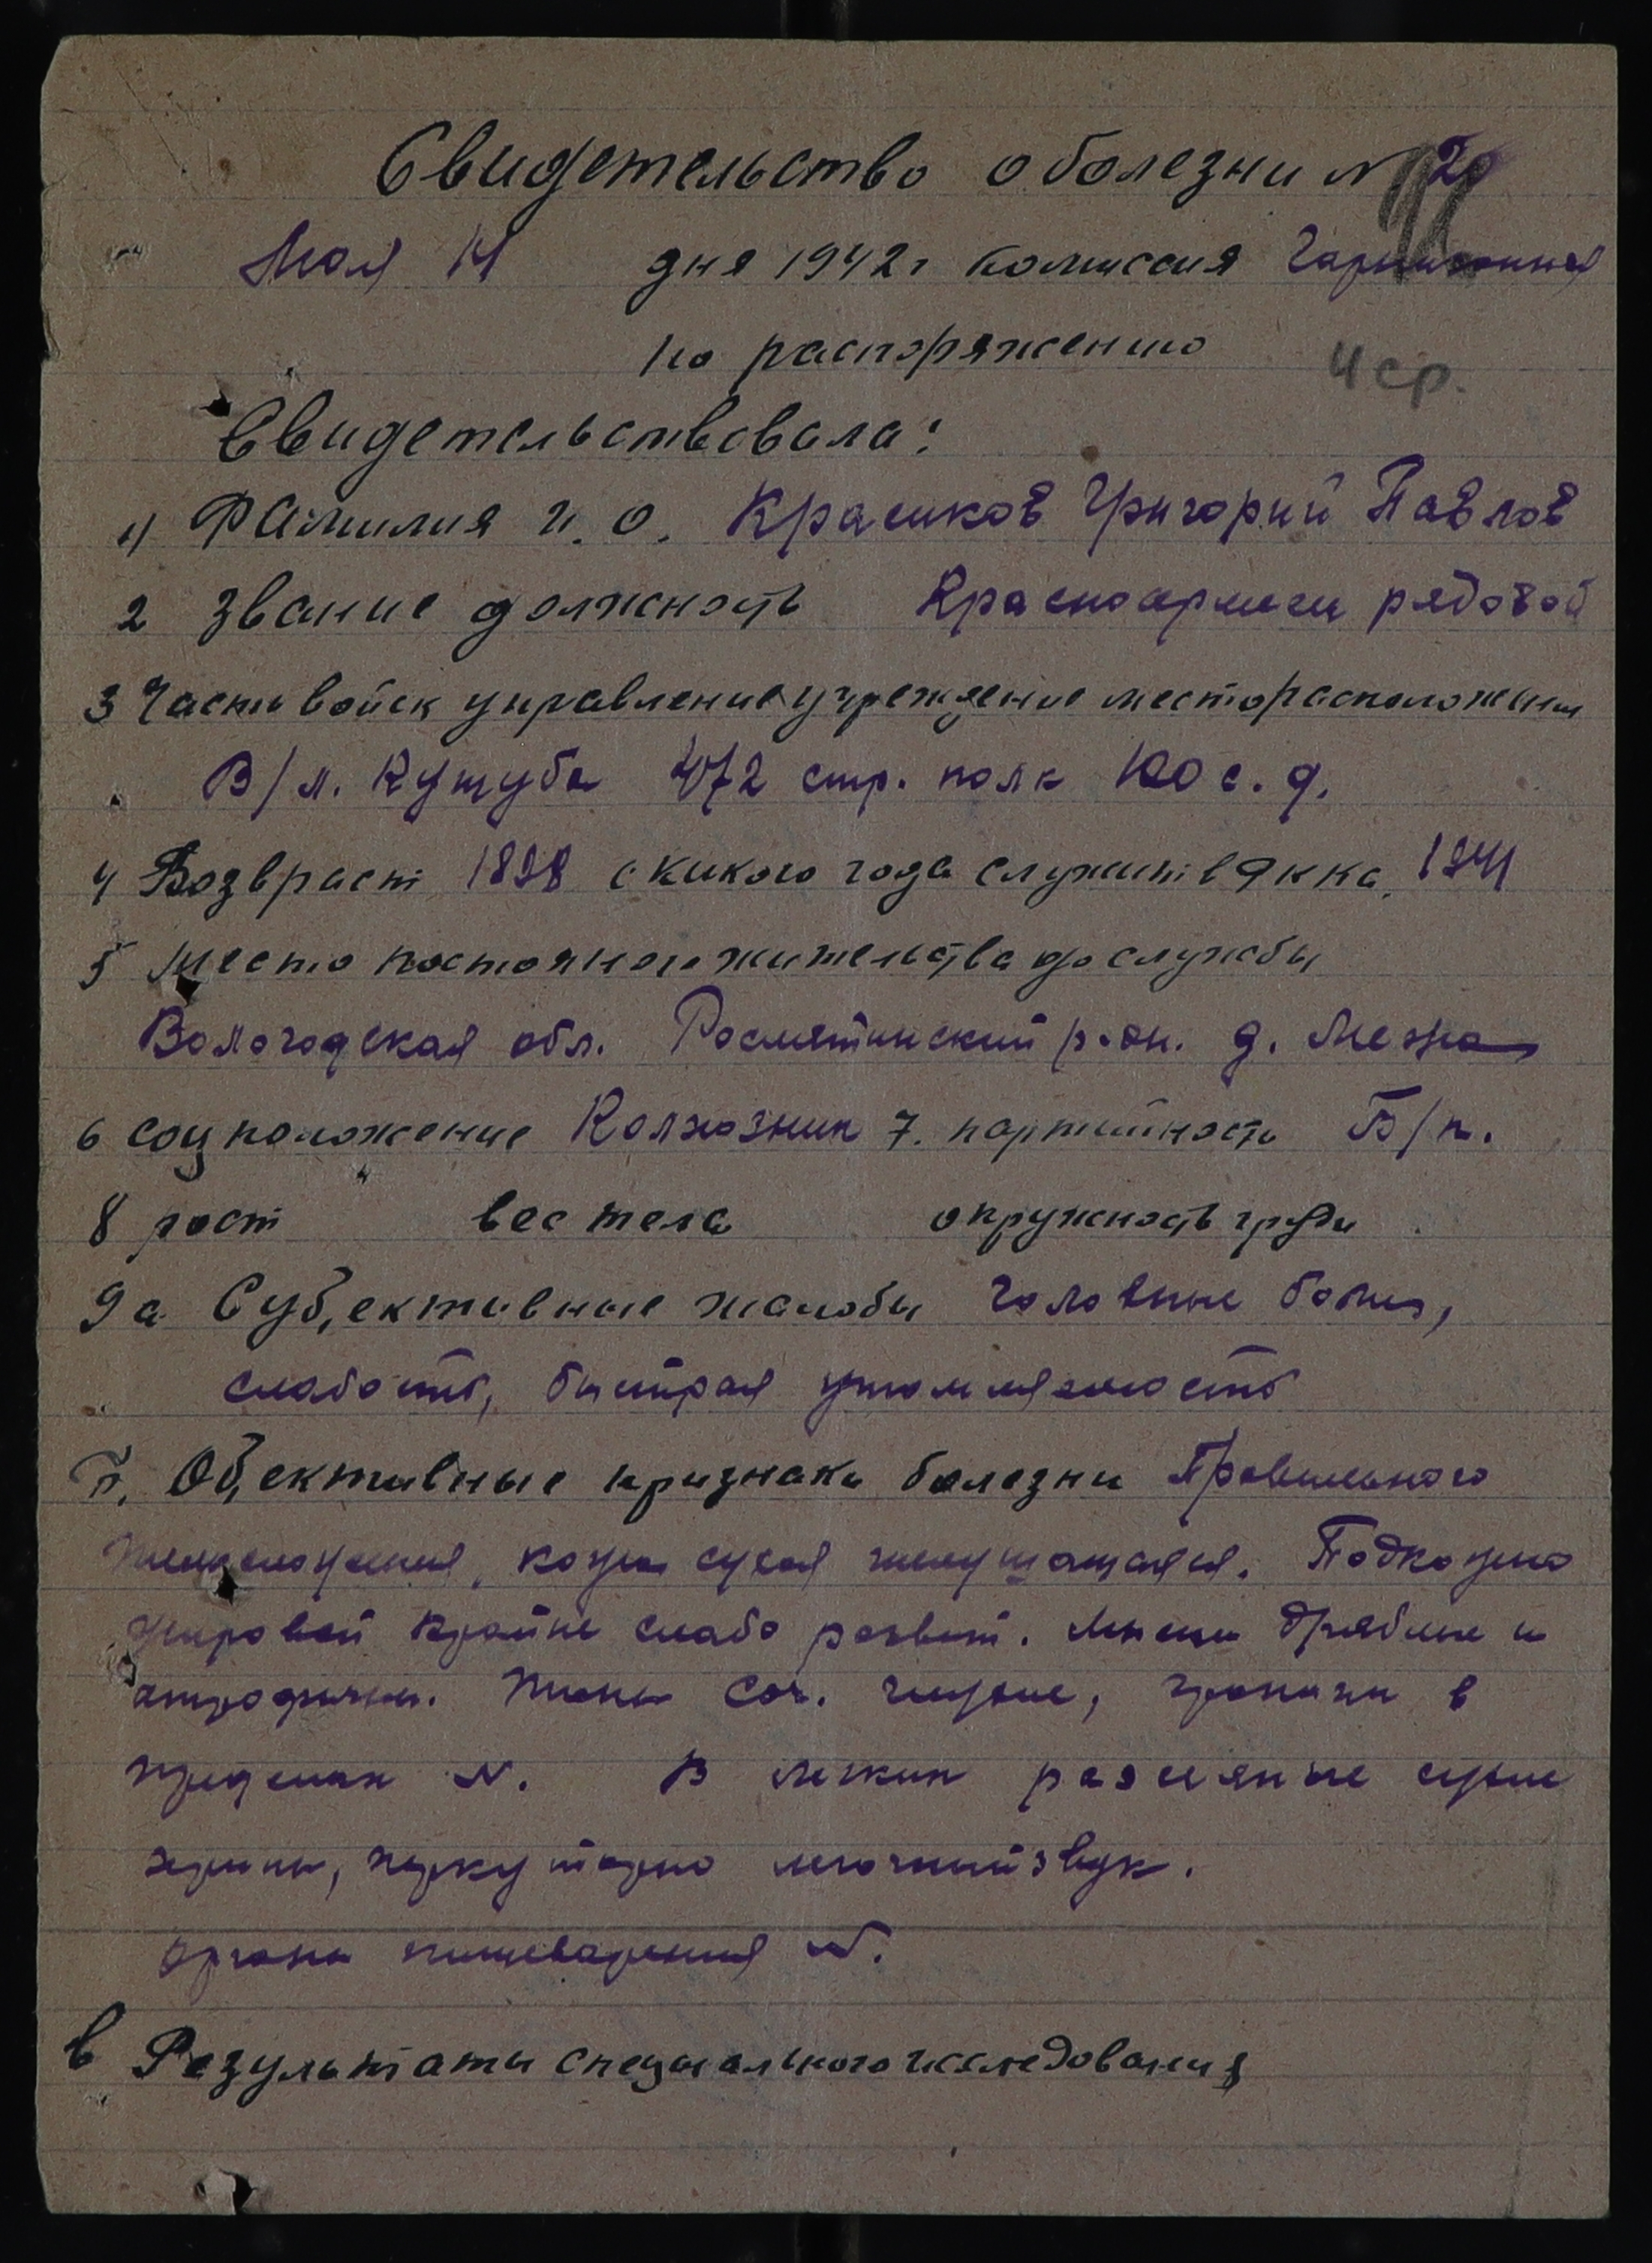 Свидетельство о болезни N 20
Мая 14 дня 1942 г комиссия Гарнизонная
по распоряжению
4 ср.
Свидетельствовала:
1) Фамилия и. о. Красиков Григорий Павлов
2 звание должность Красноармеец рядовой
3 Часть войск управление учреждение месторасположения
В/л. Кущуба 472 стр. полк 100 с. д.
4 Возвраст 1898 с какого года служит в Якка. 1941
5 место постоянного жительства до службы
Вологодская обл. Рослятинский р-он. д. Межа
6 соц положение Колхозник 7. партийность Б/п.
8 рост вес тела окружность груди
9 а Суб,ективные жалобы головные боли,
слабость, быстрая утомляемость
б. Об,ективные признаки болезни Правильного
телосложения, кожа сухая шелушащаяся. Подкожно
жировой крайне слабо развит. Мышцы дряблые и
атрофичны. Тоны сер. глухие, границы в
пределах N. В легких рассеяные сухие
хрипы, перкуторно легочный звук.
Органы пищеварения N.
в Результаты специального исследования